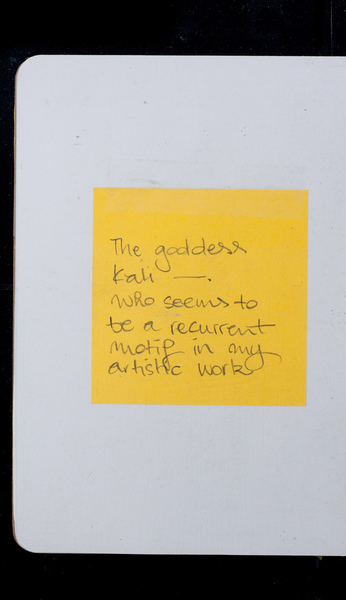 The goddess
Kali —.
who seems to
be a recurrent
motif in my
artistic work